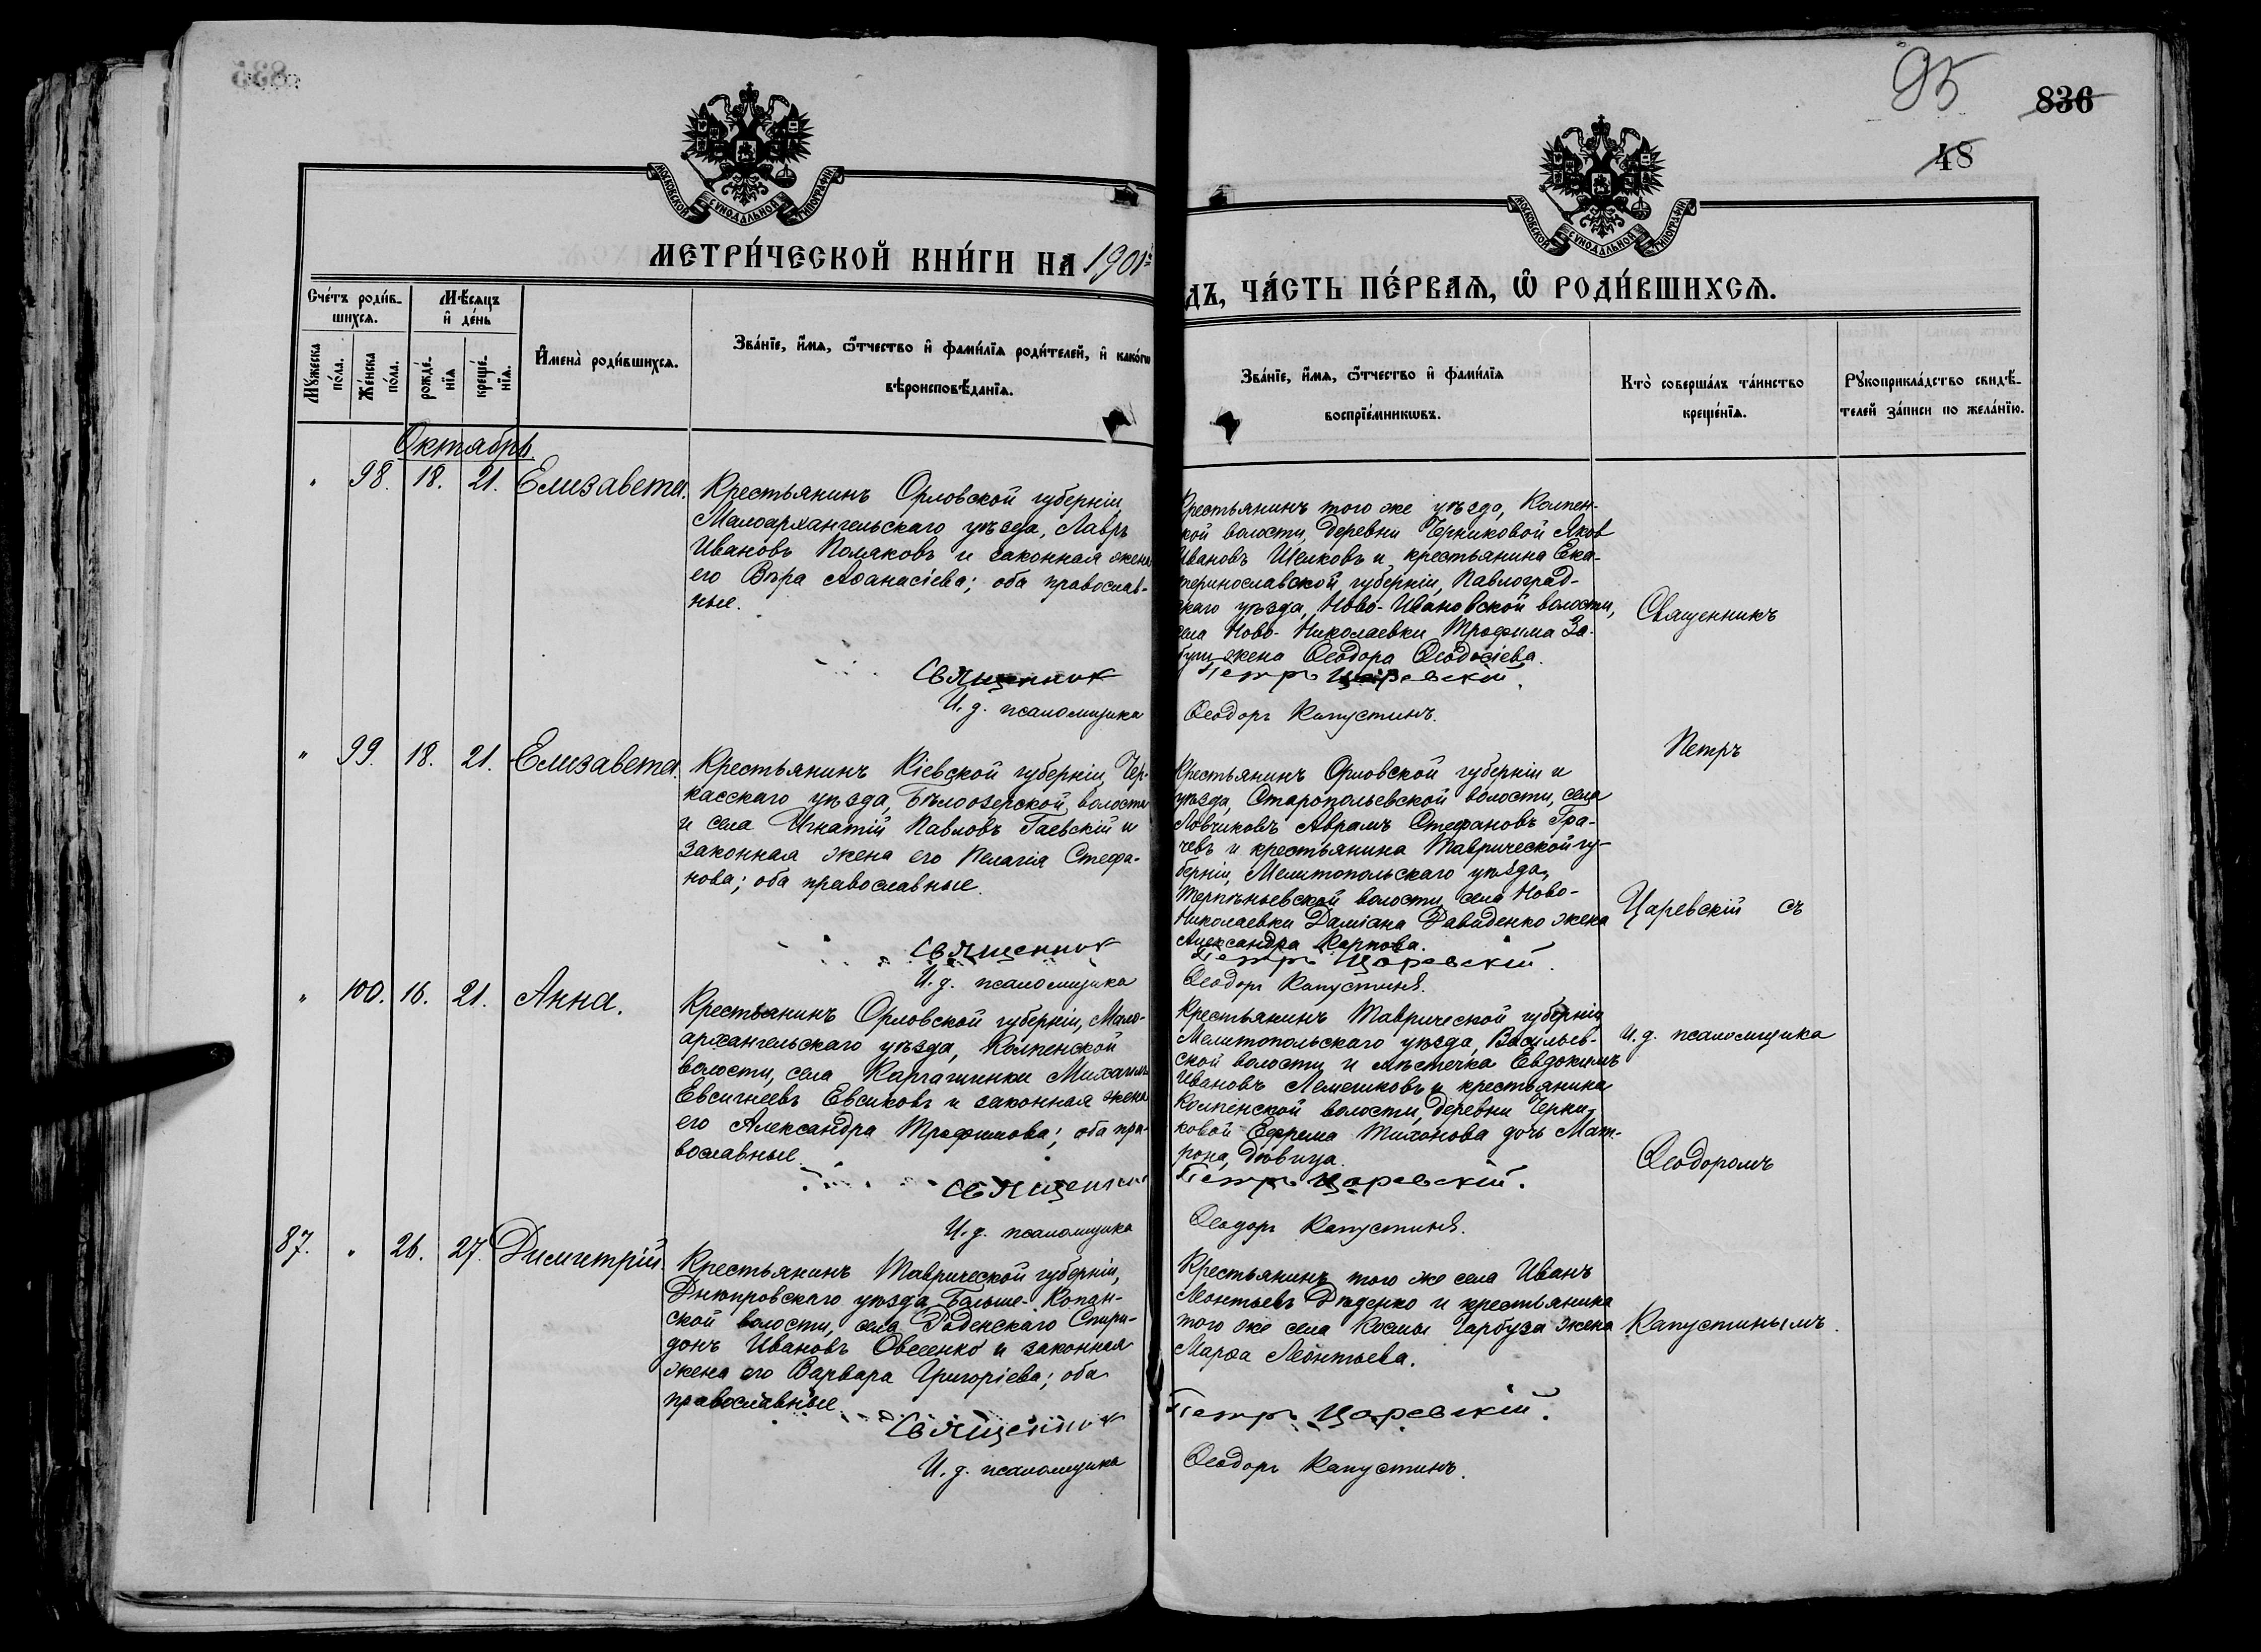 95
836
48
МОСКОВСКОЙ СУНОДАЛЬНОЙ ТИПОГРАФІИ
МОСКОВСКОЙ СУНОДАЛЬНОЙ ТИПОГРАФІИ
МЕТРИ́ЧЕСКОЙ КНИ́ГИ НА 1901й
ДЪ, ЧА́СТЬ ПЕ́РВАѦ, Ѡ РОДИ́ВШИХСѦ.
Сче́тъ роди́в-
шихсѧ.
Мѣ́сѧцъ
и҆ де́нь
Мꙋ́жеска
по́ла.
Же́нска
по́ла.
рожде́-
нїѧ
креще́-
нїѧ.
И҆мена̀ роди́вшихсѧ.
Зва́нїе, и҆́мѧ, ѻ҆́тчество и҆ фами́лїѧ роди́телей, и҆ како́гѡ
вѣроисповѣ́данїѧ.
Зва́нїе, и҆́мѧ, ѻ҆́тчество и҆ фами́лїѧ
воспрїе́мникѡвъ.
Кто̀ соверша́лъ та́инство
креще́нїѧ.
Рꙋкоприкла́дство свидѣ́-
телей за́писи по жела́нїю.
Октябрь
" 98. 18. 21. Елизавета.
Крестьянинъ Орловской губерніи,
Малоархангельскаго уѣзда, Лавръ
Ивановъ Поляковъ и законная жена
его Вѣра Аѳанасіева; оба православ-
ные.
Священник
И. д. псаломщика
Крестьянинъ того же уѣзда, Колпен-
ской волости, деревни Черниковой Яков
Ивановъ Шелковъ и крестьянина Ека-
теринославской губерніи, Павлоград-
скаго уѣзда, Ново-Ивановской волости,
села Ново-Николаевки Трофима За-
жена Ѳеодора Ѳеодосіева.
Петръ Царевскій.
Ѳеодоръ Капустинъ.
" 99. 18. 21. Елизавета.
Крестьянинъ Кіевской губерніи, Чер-
касскаго уѣзда, Бѣлоозерской волости
и села Игнатій Павловъ Гаевскій и
законная жена его Пелагія Стефа-
нова; оба православные.
Священник
И. д. псаломщика
Крестьянинъ Орловской губерніи и
уѣзда, Старопольевской волости, села
Ловчиковъ Аврамъ Стефановъ Гра-
чевъ и крестьянина Таврической гу-
берніи, Мелитопольскаго уѣзда,
Терпѣньевской волости, села Ново-
Николаевки Даміана Давиденко жена
Александра Карпова.
Петръ Царевскій.
Ѳеодоръ Капустинъ.
" 100. 16. 21. Анна.
Крестьянинъ Орловской губерніи, Мало-
архангельскаго уѣзда, Колпенской
волости, села Каргашинки Михаилъ
Евсигнеевъ Евсиковъ и законная жена
его Александра Трофимова; оба пра-
вославные.
Священник
И. д. псаломщика
Крестьянинъ Таврической губерніи,
Мелитопольскаго уѣзда, Васильев-
ской волости и мѣстечка Евдокимъ
Ивановъ Лемешковъ и крестьянина
Колпенской волости, деревни Черни-
ковой Ефрема Тихонова дочь Мат-
рона, дѣвица.
Петръ Царевскій.
Ѳеодоръ Капустинъ.
87. " 26. 27. Димитрій.
Крестьянинъ Таврической губерніи,
Днѣпровскаго уѣзда, Больше-Копан-
ской волости, села Раденскаго Спири-
донъ Ивановъ Овсеенко и законная
жена его Варвара Григоріева; оба
православные.
Священник
И. д. псаломщика
Крестьянинъ того же села Иванъ
Леонтьевъ Дѣденко и крестьянина
того же села Космы Гарбуза жена
Марѳа Леонтьева.
Петръ Царевскій.
Ѳеодоръ Капустинъ.
Священникъ
Петръ
Царевскій съ
и. д. псаломщика
Ѳеодоромъ
Капустинымъ.